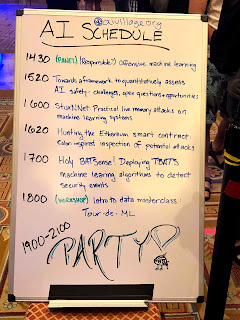 @aivillage.org
AI SCHEDULE
1430 (PANEL) (Responsible?) Offensive machine learning
1520 Towards a framework to quantitatively assess
AI safety - challenges, open questions + opportunities
1600 StuxNNet: Practical live memory attacks on
machine learning systems
1620 Hunting the Ethereum smart contract:
Color-inspired inspection of potential attacks
1700 Holy BATSense! Deploying TBATS
machine learning algorithms to detect
security events
1800 (WORKSHOP) Intro to data masterclass:
Tour-de-ML
1900-2100
PARTY